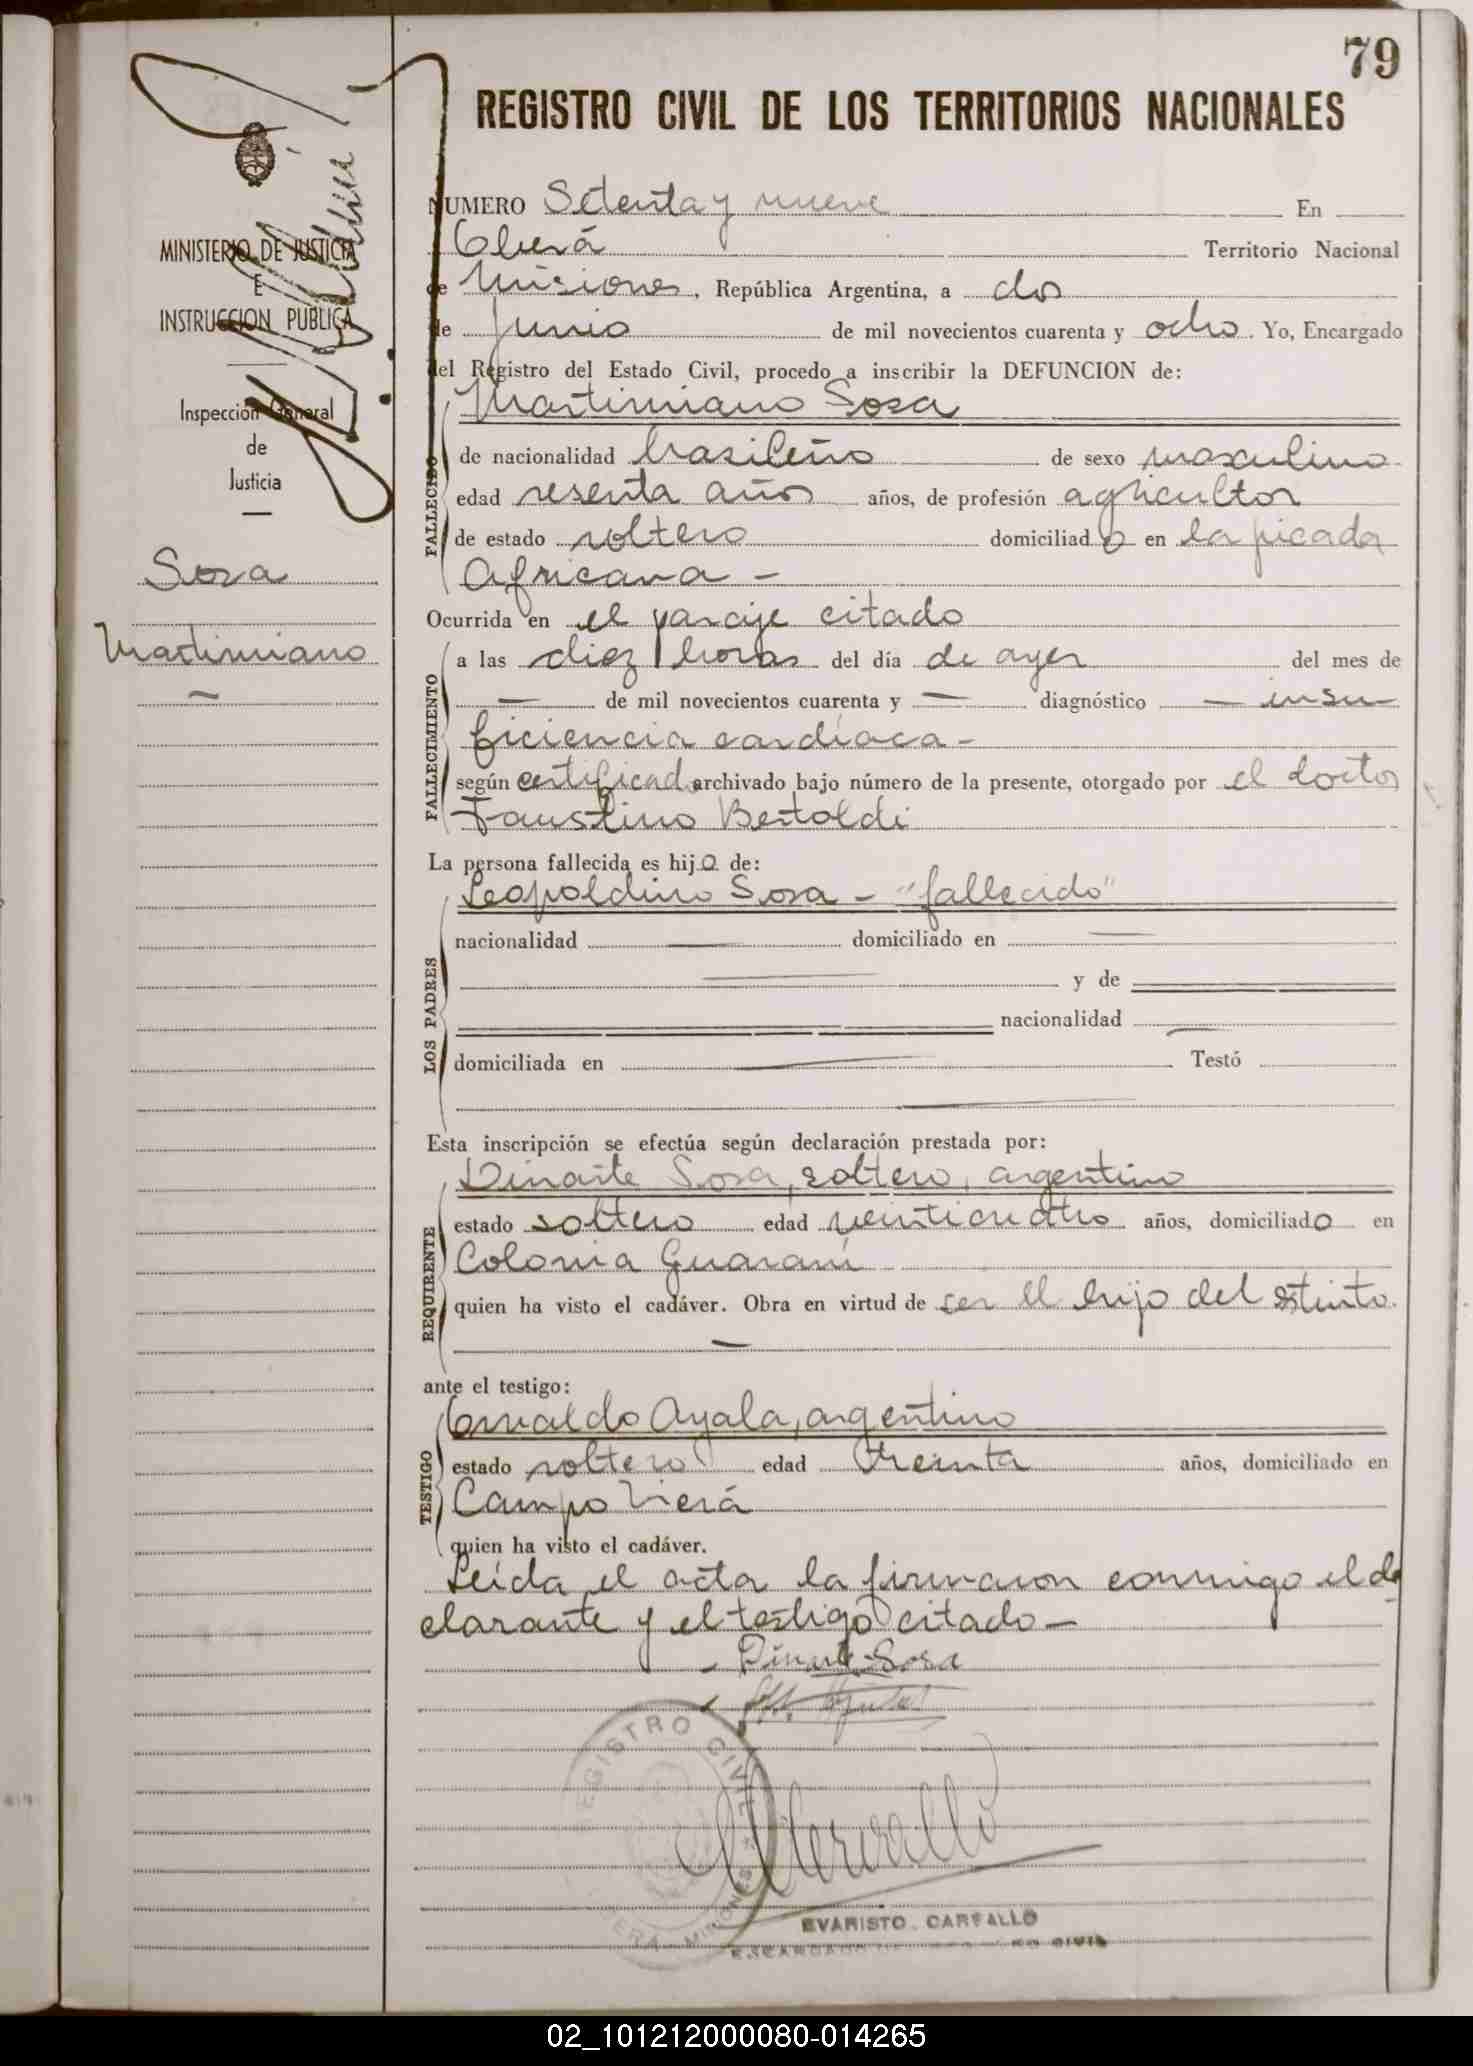 79
REGISTRO CIVIL DE LOS TERRITORIOS NACIONALES
MINISTERIO DE JUSTICIA
E
INSTRUCCION PUBLICA
Inspección General
de
Justicia
Sosa
Martimiano
NUMERO Setenta y nueve En
Oberá Territorio Nacional
de Misiones, República Argentina, a dos
de Junio de mil novecientos cuarenta y ocho. Yo, Encargado
del Registro del Estado Civil, procedo a inscribir la DEFUNCION de:
Martimiano Sosa
FALLECIDO
de nacionalidad brasileño de sexo masculino
edad sesenta años años, de profesión agricultor
de estado soltero domiciliado en la picada
Africana -
Ocurrida en el paraje citado
FALLECIMIENTO
a las diez horas del día de ayer del mes de
— de mil novecientos cuarenta y — diagnóstico — insu
ficiencia cardíaca -
según certificado archivado bajo número de la presente, otorgado por el doctor
Faustino Bertoldi
La persona fallecida es hijo de:
LOS PADRES
Leopoldino Sosa - "fallecido"
nacionalidad — domiciliado en —
— y de
nacionalidad —
domiciliada en — Testó
Esta inscripción se efectúa según declaración prestada por:
REQUIRENTE
Dinarte Sosa, soltero, argentino
estado soltero edad veinticuatro años, domiciliado en
Colonia Guaraní
quien ha visto el cadáver. Obra en virtud de ser el hijo del extinto.
ante el testigo:
TESTIGO
Ayala, argentino
estado soltero edad treinta años, domiciliado en
Campo Vierá
quien ha visto el cadáver.
Leída el acta la firmaron conmigo el de
clarante y el testigo citado -
- Dinarte Sosa
REGISTRO CIVIL
OBERA - MISIONES
EVARISTO CARFALLO
ENCARGADO DEL REGISTRO CIVIL
02_101212000080-014265